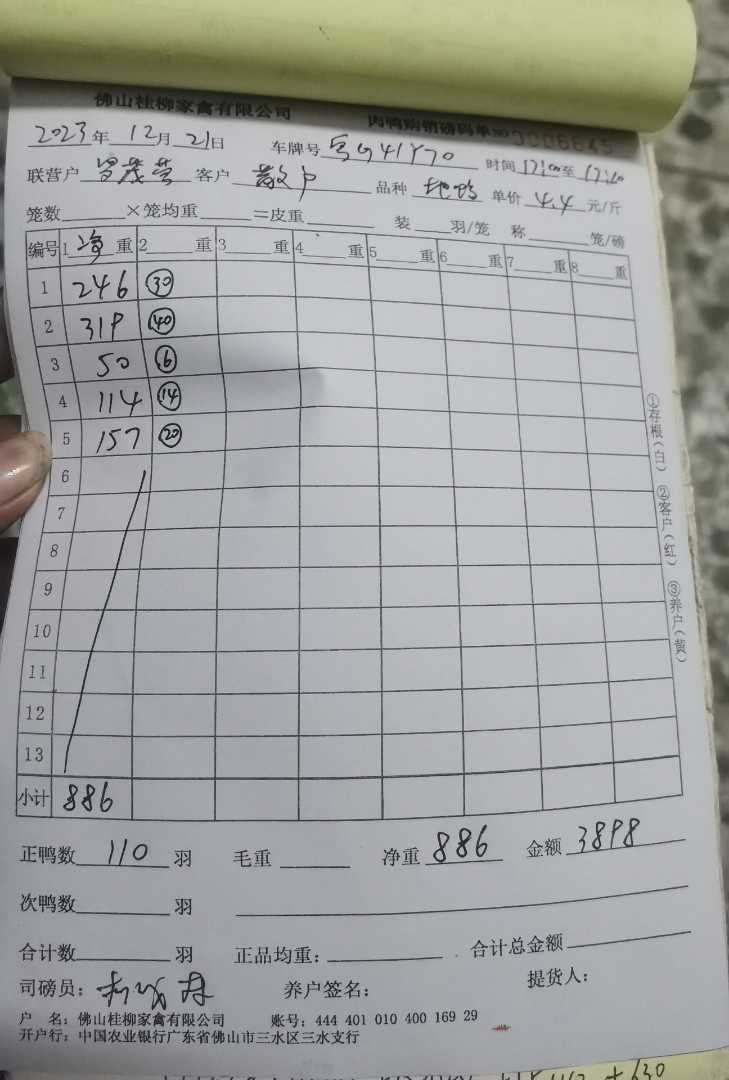 佛山桂柳家禽有限公司 肉鸭购销磅码单 NO 0006645
2023年 12月 21日 车牌号 41Y70 时间 17:00至 17:20
联营户 客户 散户 品种 单价 4.4 元/斤
笼数 ×笼均重 =皮重 装 羽/笼 称 笼/磅
编号 1 净 重 2 重 3 重 4 重 5 重 6 重 7 重 8 重
1 246 30
2 319 40
3 50 6
4 114 14
5 157 20
6
7
8
9
10
11
12
13
小计 886
正鸭数 110 羽 毛重 净重 886 金额 3898
次鸭数 羽
合计数 羽 正品均重: 合计总金额
司磅员: 养户签名: 提货人:
户 名: 佛山桂柳家禽有限公司 账号: 444 401 010 400 169 29
开户行: 中国农业银行广东省佛山市三水区三水支行
①存根(白) ②客户(红) ③养户(黄)